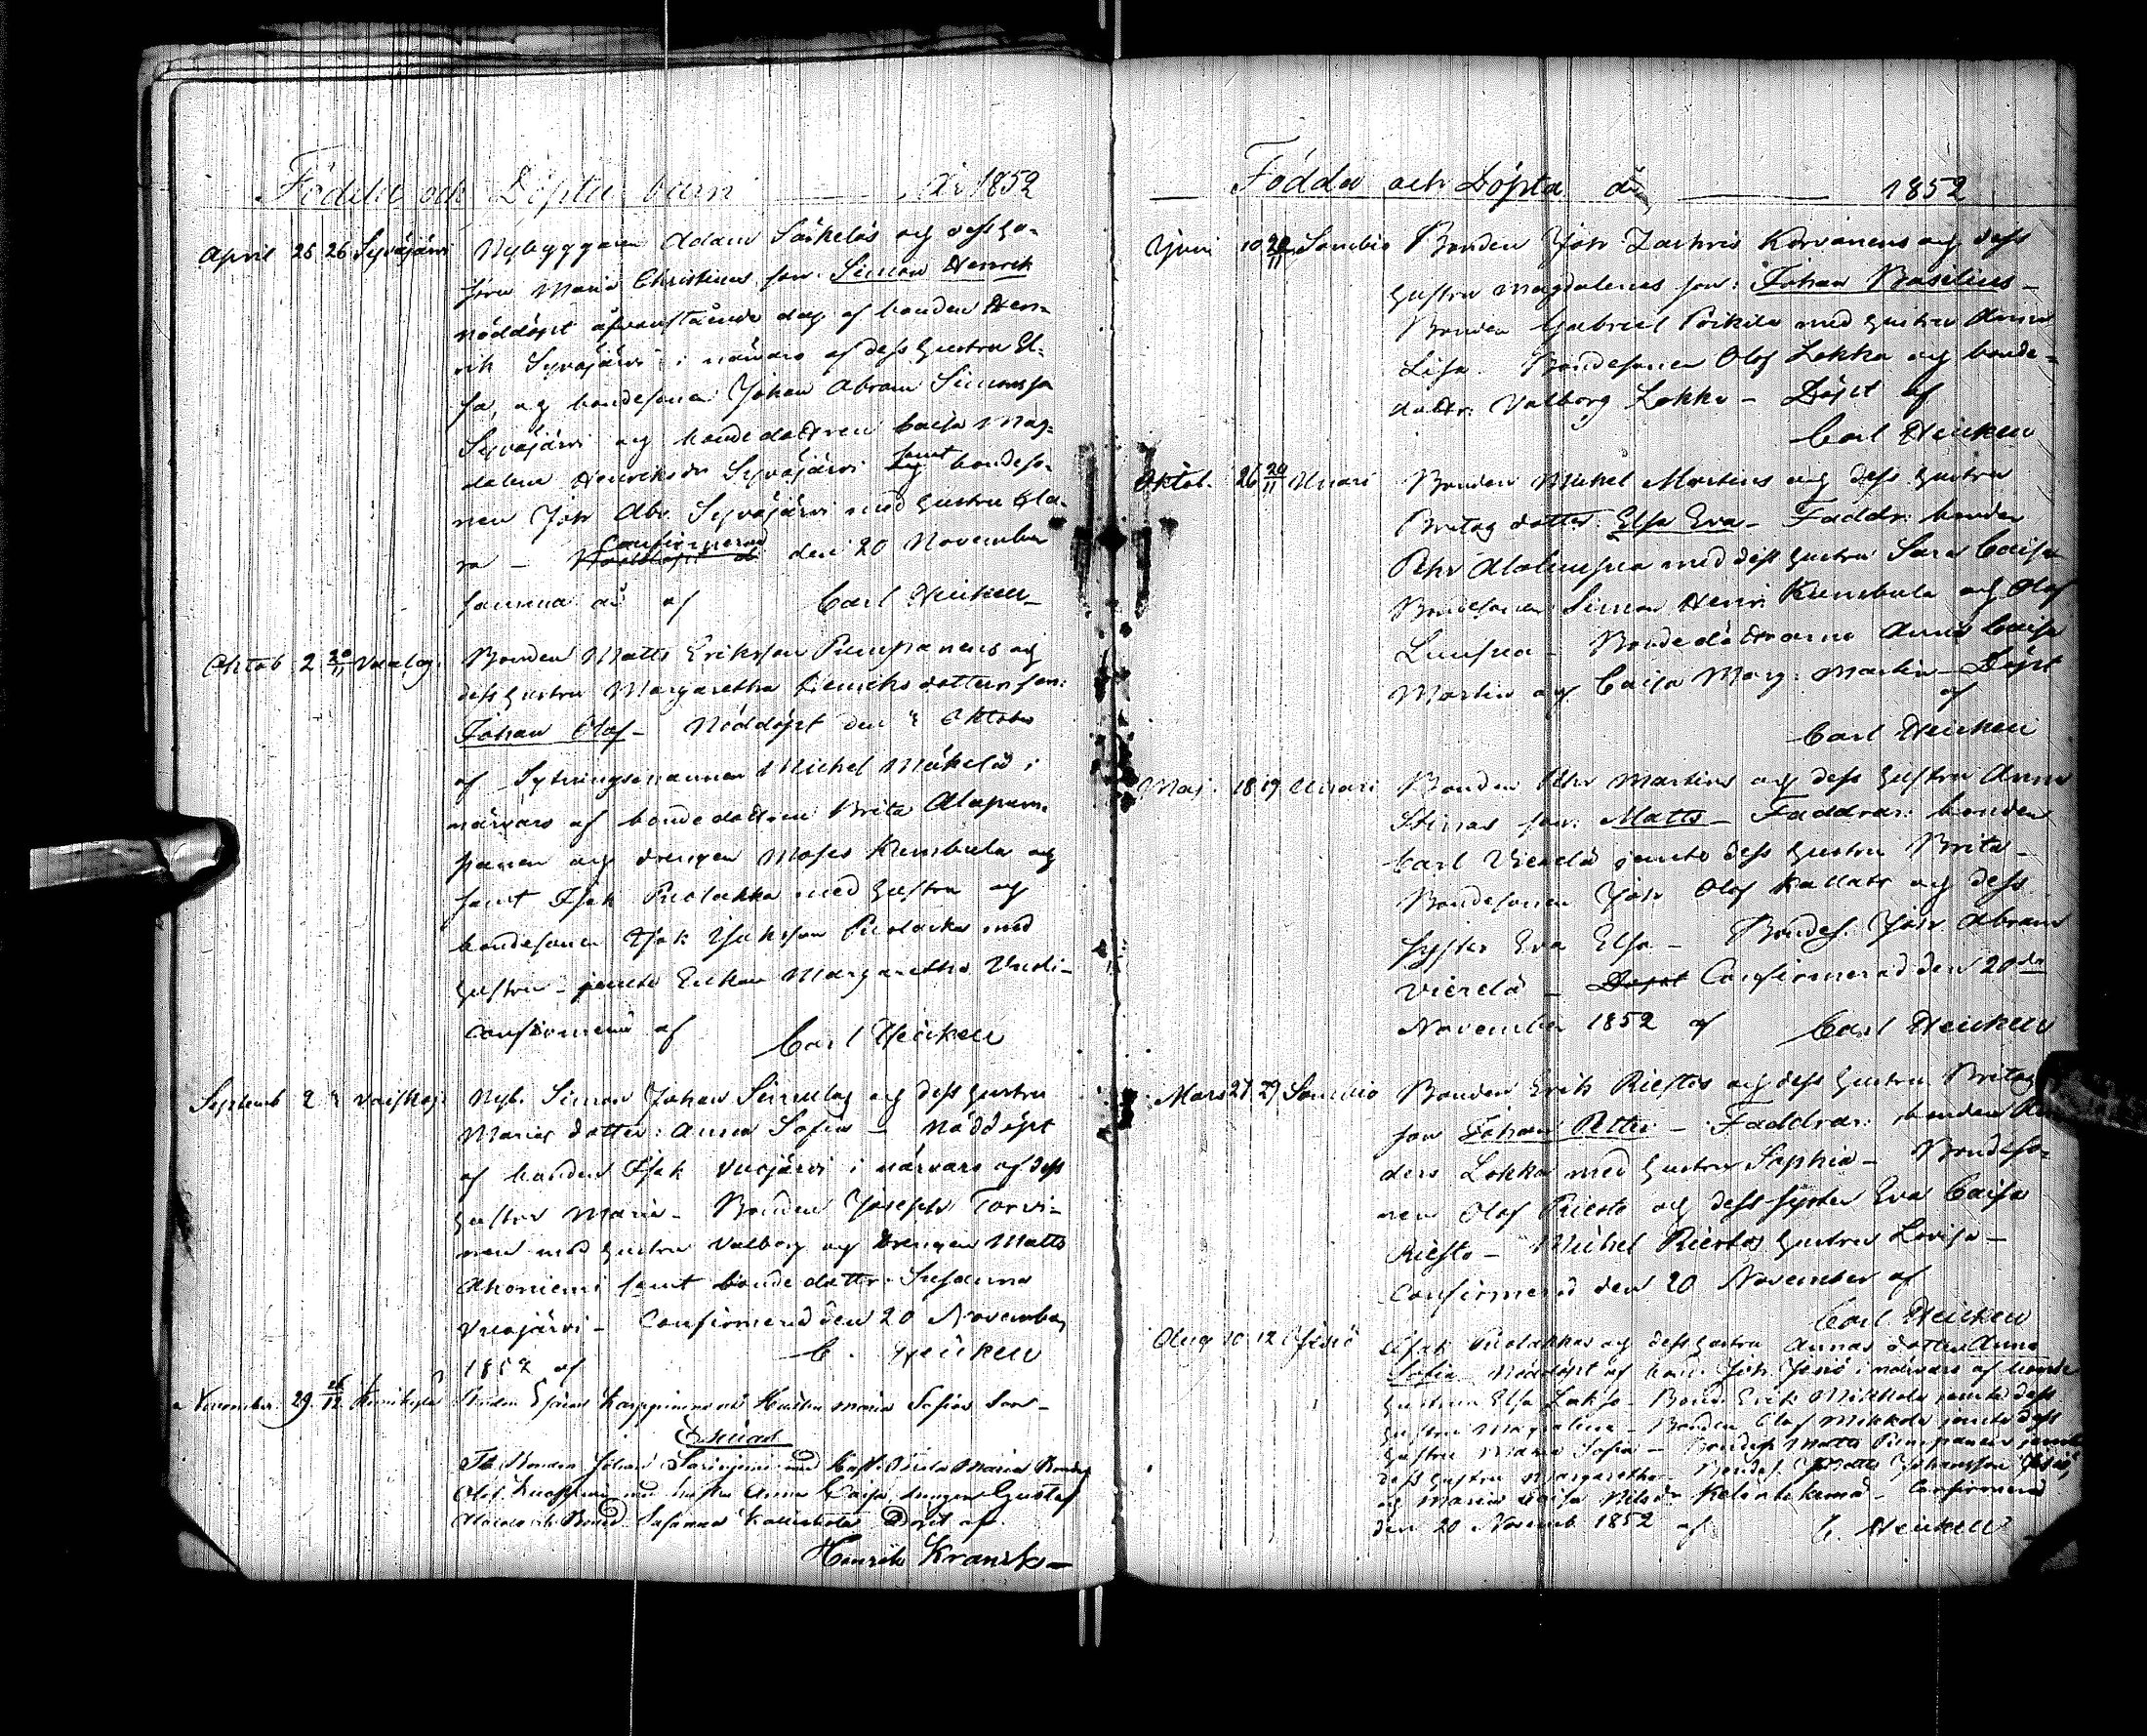 Födde och Döpta barn År 1852
April 25 26 Syväjärvi Nybyggaren Adam Säkeläs och dess hu-
stru Maria Christinas son: Simon Henrik
nöddöpt ofvanstående dag af bonden Hen-
rik Syväjärvi i närvaro af dess hustru El-
sa, och bondesonen Johan Abram Simonsson
Syväjärvi och bondedottren Caisa Mag-
dalena Henriksdr Syväjärvi samt bondeso-
nen Joh Abr. Syväjärvi med hustru Cla-
ra – Confirmerad den 20 November
samma år af Carl Heickell
Oktob 2 20/11 Matts Eriksson Pumpanens och
dess hustru Margaretha Henriksdotters son:
Johan Olof – Nöddöpt den 4 Oktober
af Sytningsmannen Michel Mäkelä i
närvaro af bondedottren Brita Alapum-
panen och drengen Moses Kumbula och
samt Isak Puolakka med hustru och
bondesonen Isak Isaksson Puolakka med
hustru – jemte Enkan Margaretha
Confirmerad af Carl Heickell
Septemb 2 4 Nyb. Simon Johan och dess hustru
Marias dotter: Anna Sofia – Nöddöpt
af bonden Isak Vuojärvi i närvaro af dess
hustru Maria – Bonden Joseph Torvi-
nen med hustru Valborg och Drengen Matts
Ahoniemi samt bondedottr. Susanna
Vuojärvi – Confirmerad den 20 November
1852 af C. Heickell
November 29 Bonden och Hustru Maria Sofias son –
Esaias
Bonden Johan med Hust. Brita Maria
Olof med hustru Anna Caisa drengen Gustaf
Döpt af
Henrik Kranck –
Födda och Döpta år 1852
Juni 10 20/11 Sombio Bonden Joh Zachris Korvanens och dess
hustru Magdalenas son: Johan Basilius –
Bonden Gabriel Peikila med hustru Anna
Lisa. Bondesonen Olof Lokka och bonde-
dottr. Valborg Lokka – Döpt af
Carl Heickell
Oktob. 26 20/11 Unari Bonden Michel Martins och dess hustru
Britas dotter: Elsa Eva – Faddr: bonden
Pehr Alaluusua med dess hustru Sara Caisa
Bondesonen Simon Henr. Kumbula och Olof
Luusua – Bondedöttrarna Anna Caisa
Martin och Caisa Marg: Martin – Döpt
af
Carl Heickell
Maj 18 19 Unari Bonden Pehr Martins och dess hustru Anna
Stinas son: Matts – Faddrar: bonden
Carl Vierelä jemte dess hustru Brita –
Bondesonen Joh Olof Kallatr och dess
syster Eva Elsa – Bondes. Joh Abram
Vierelä – Döpt Confirmerad den 20de
November 1852 af Carl Heickell
Mars 27 29 Sombio Bonden Erik Riestos och dess hustru Britas
son Johan Petter – Faddrar: bonden An-
ders Lokka med hustru Sophia – Bondeso-
nen Olof Riesto och dess syster Eva Caisa
Riesto – Michel Riestos hustru Lovisa –
Confirmerad den 20 November af
Carl Heickell
Aug 10 12 Jesiö Isak Puolakkas och dess hustru Annas dotter Anna
Sofia Nöddöpt af bon. Joh Jesiö i närvaro af bonde
hustrun Elsa – Bond. Erik Mikkola jemte dess
hustru Magdalena – Bonden Olof Mikkola jemte dess
hustru Maria Sofia – Bondes. Matts Pumpanen jemte
dess hustru Margaretha – Bondes. Matts Johansson Jesiö
och Maria Caisa Nilsdr – Confirmerad
den 20 Novemb. 1852 af C. Heickell